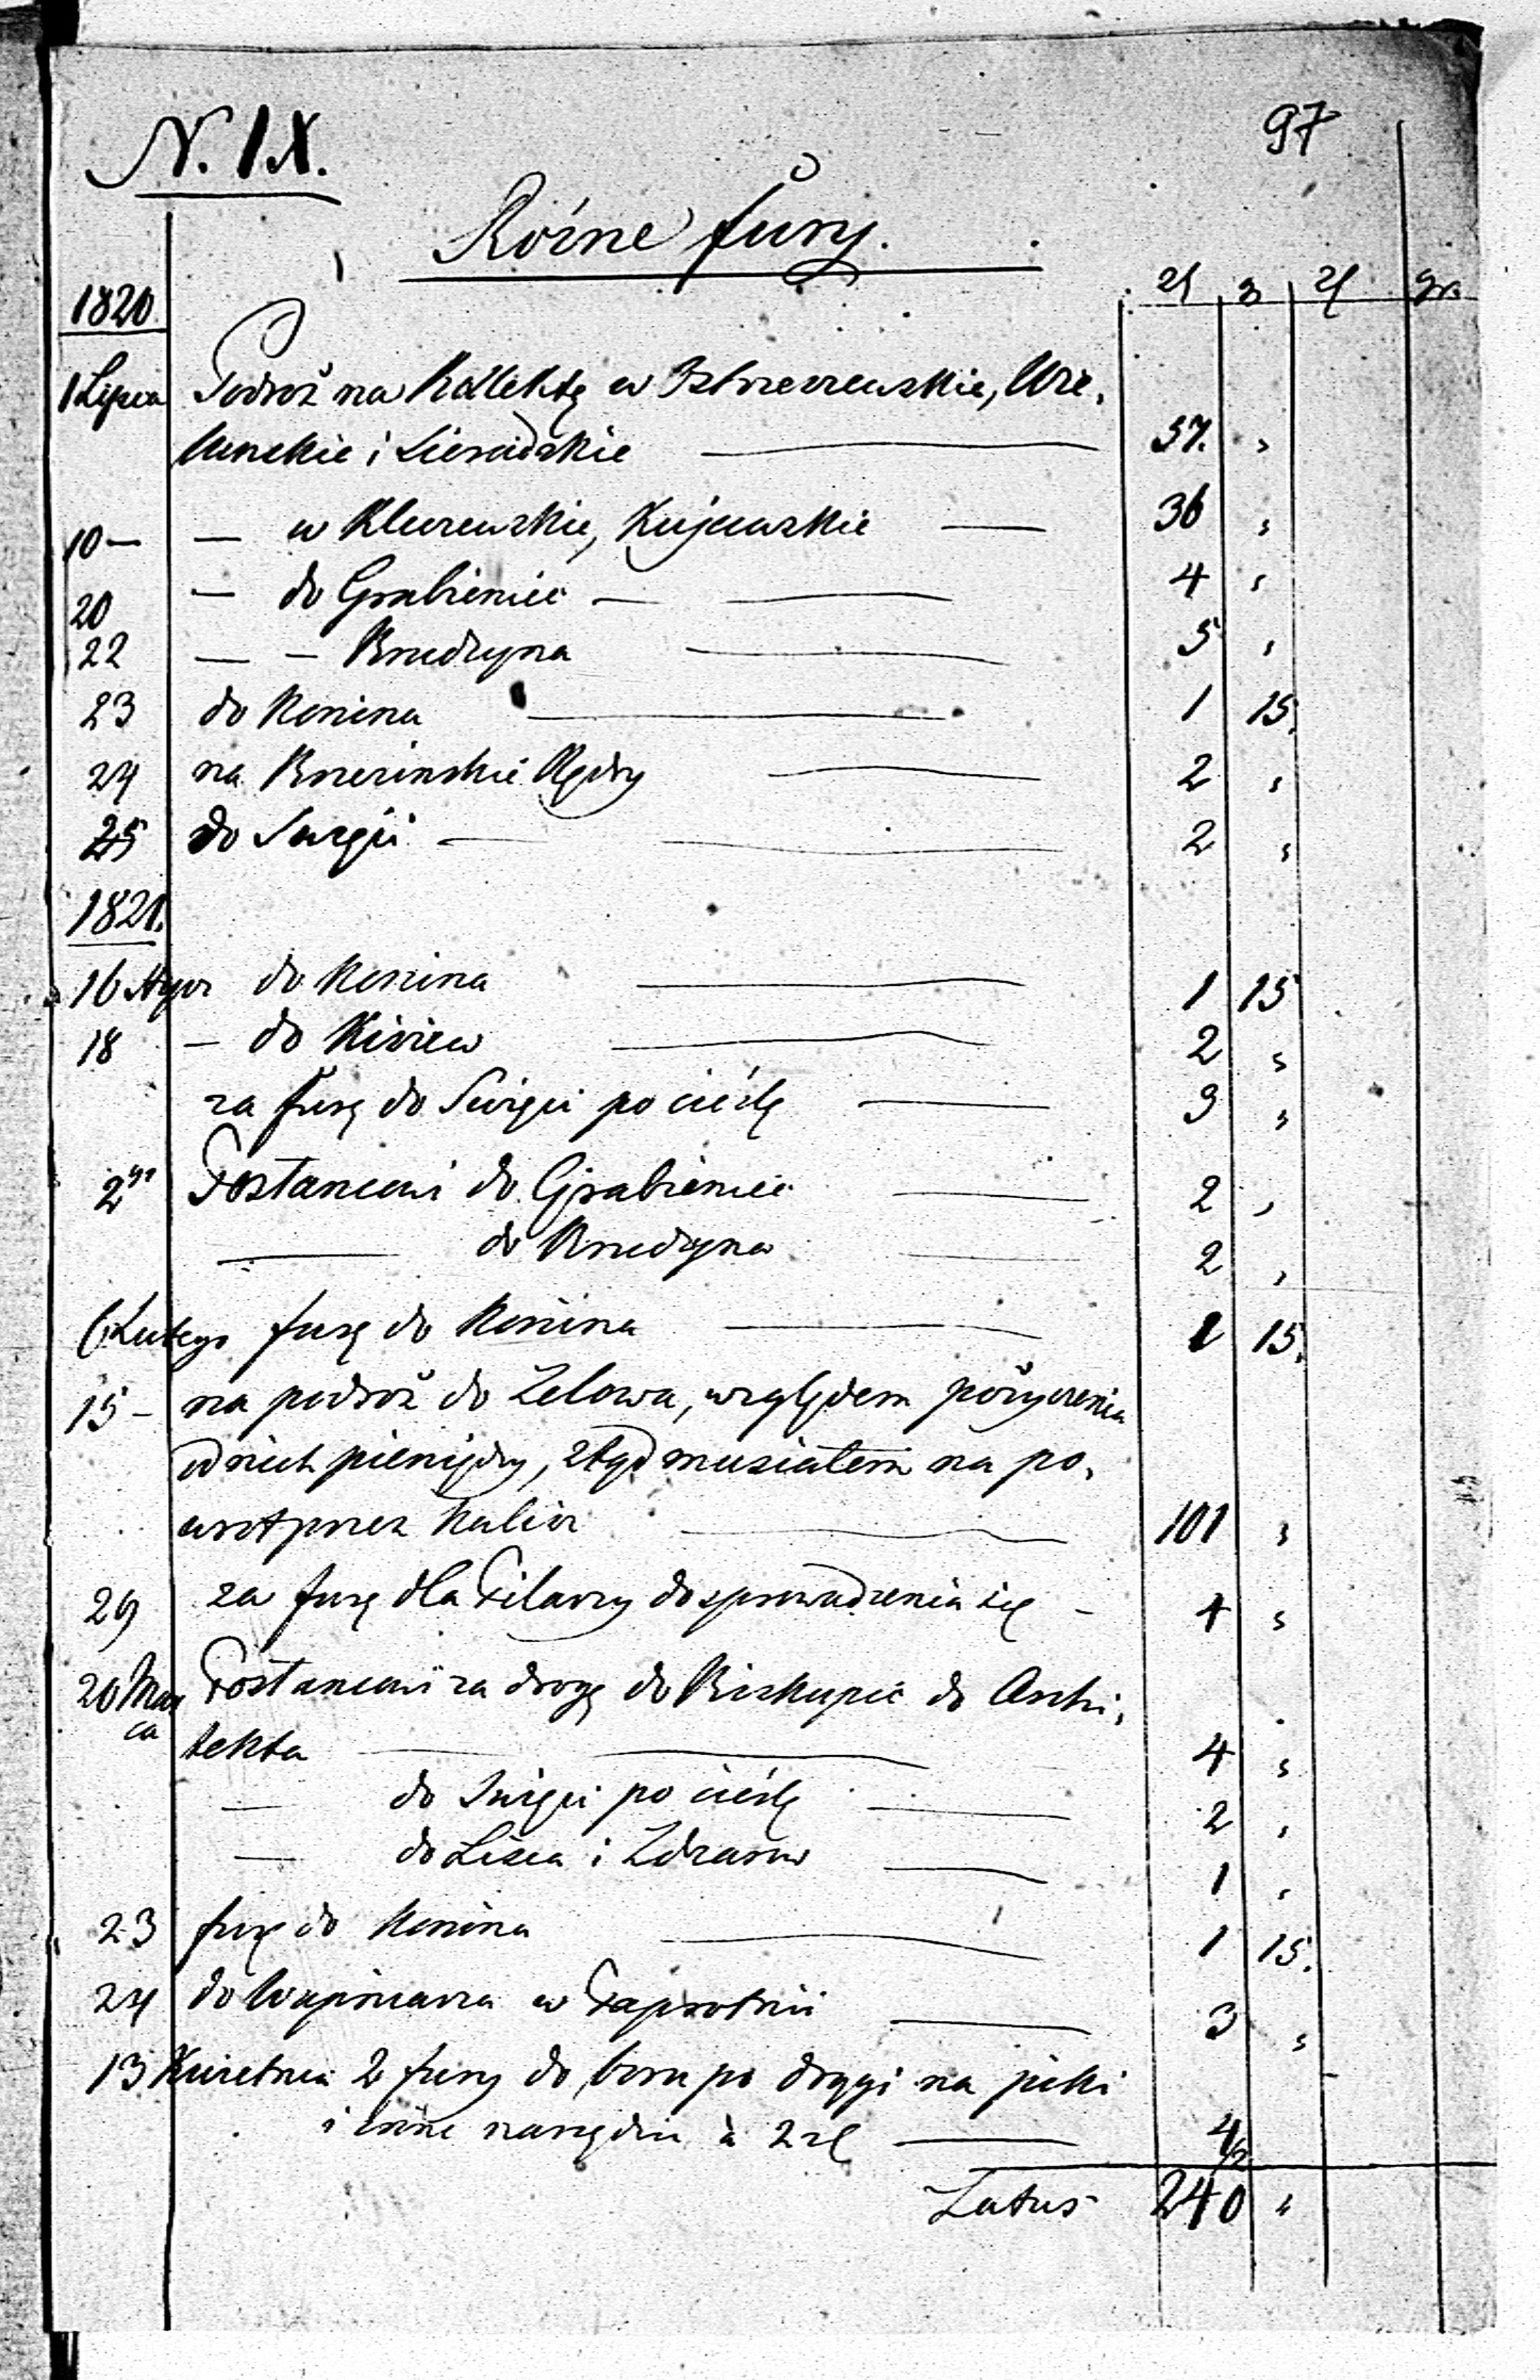 N. IX.
97
Różne fury.
zł gr zł gr
1820
1 Lipca Podroż na Kollektę w Ostrzeszewskie, Wie,
lunskie i Sieradzkie 57. "
10 — — w Kleczewskie, Kujawskie 36 "
20 — do Grabieniec — 4 "
22 — — Brudzyna 5 "
23 do Konina 1 15.
24 na Brzezinskie Kędry 2 "
25 do 2 "
1821.
16 do Konina 1 15
18 — do 2 "
za furę do po cieślę 3 "
Posłancowi do Grabieniec 2 "
do Brudzyna 2 "
6 Lutego furę do Konina 1 15.
15 — na podroż do Zelowa, względem pożyczenia
od nich pieniędzy, ztąd musiałem na po,
wrot przez Kalisz 101 "
29 za furę dla Pilarzy do sprowadzenia się — 4 "
20 Mar
ca Posłancowi za drogę do Biskupic do Archi,
tekta 4 "
— do po cieślę 2 "
— do Lisca i 1 "
23 furę do Konina 1 15.
24 do Wapniarza w Paprotnii 3 "
13 Kwietnia 2 fury do boru po drągi na
i inne narzędzia à 2 zł 4 "
Latus 240 "